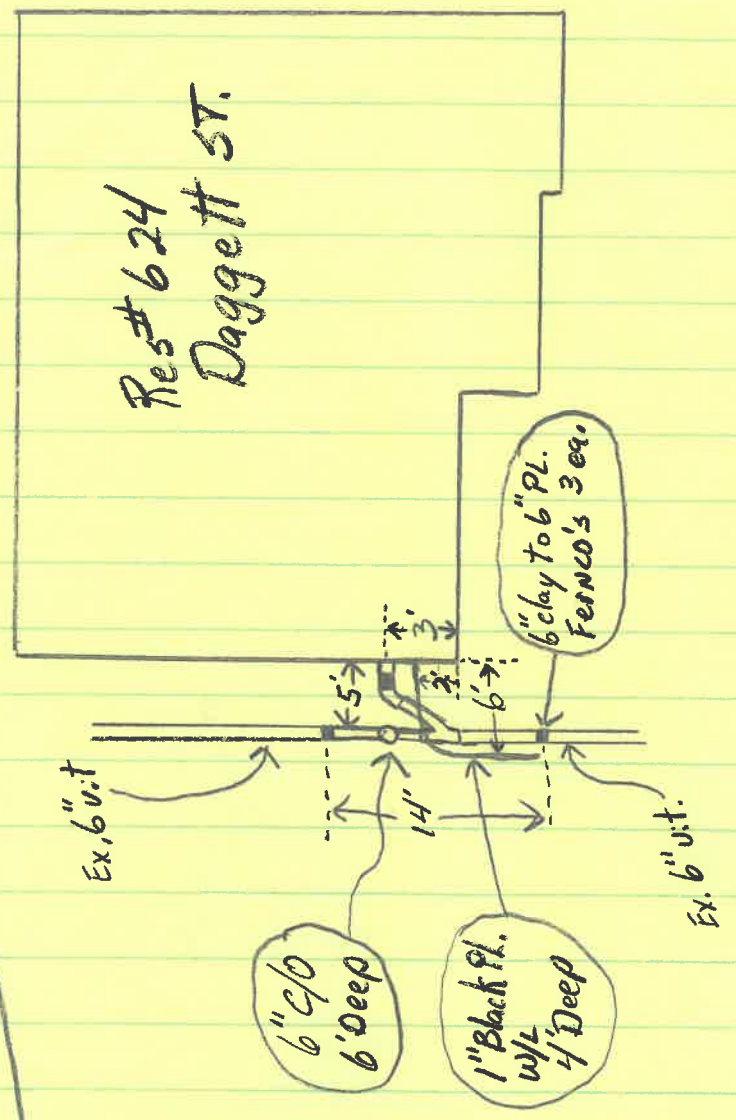 Res# 624
Daggett ST.
Ex. 6" vit
5'
3'
2'
6'
14'
6" clay to 6" PL.
Fernco's 3 ea.
6" C/O
6' Deep
1" Black Pl.
W/L
4' Deep
Ex. 6" vit.